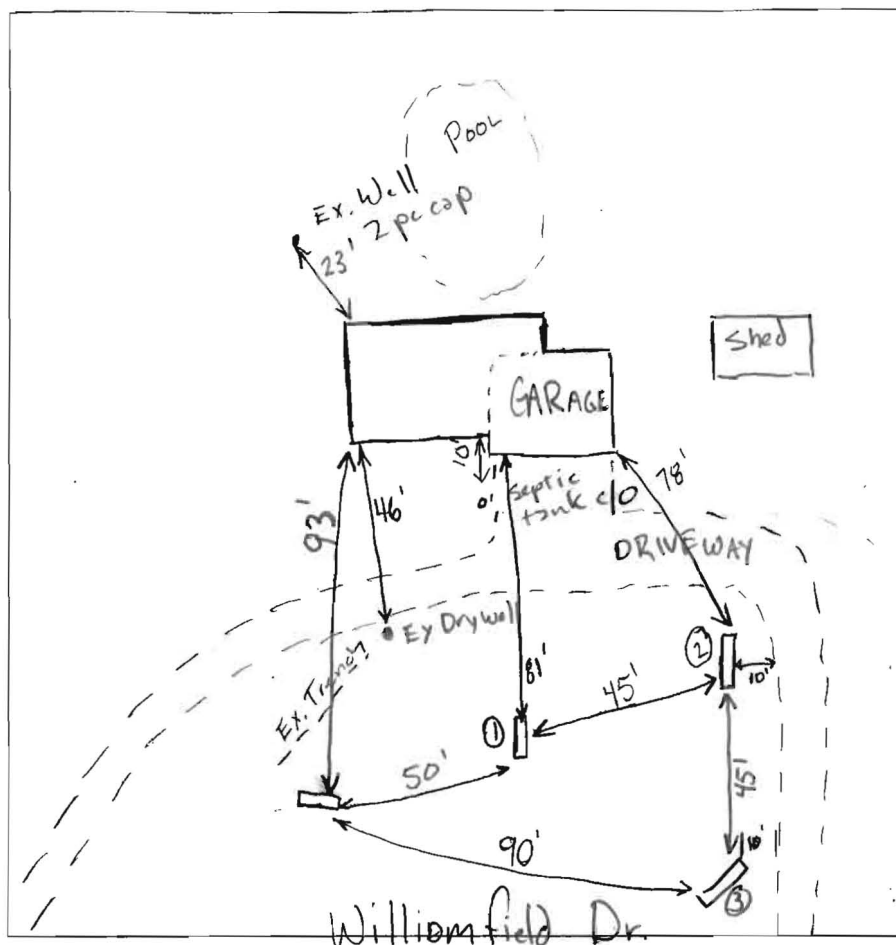 POOL
Ex. Well
2 pc cap
23'
Shed
GARAGE
10'
93'
46'
0'
Septic
tank c/o
78'
DRIVEWAY
Ex Drywell
Ex. Trench
81'
②
10'
45'
①
50'
45'
90'
10'
③
Williamfield Dr.